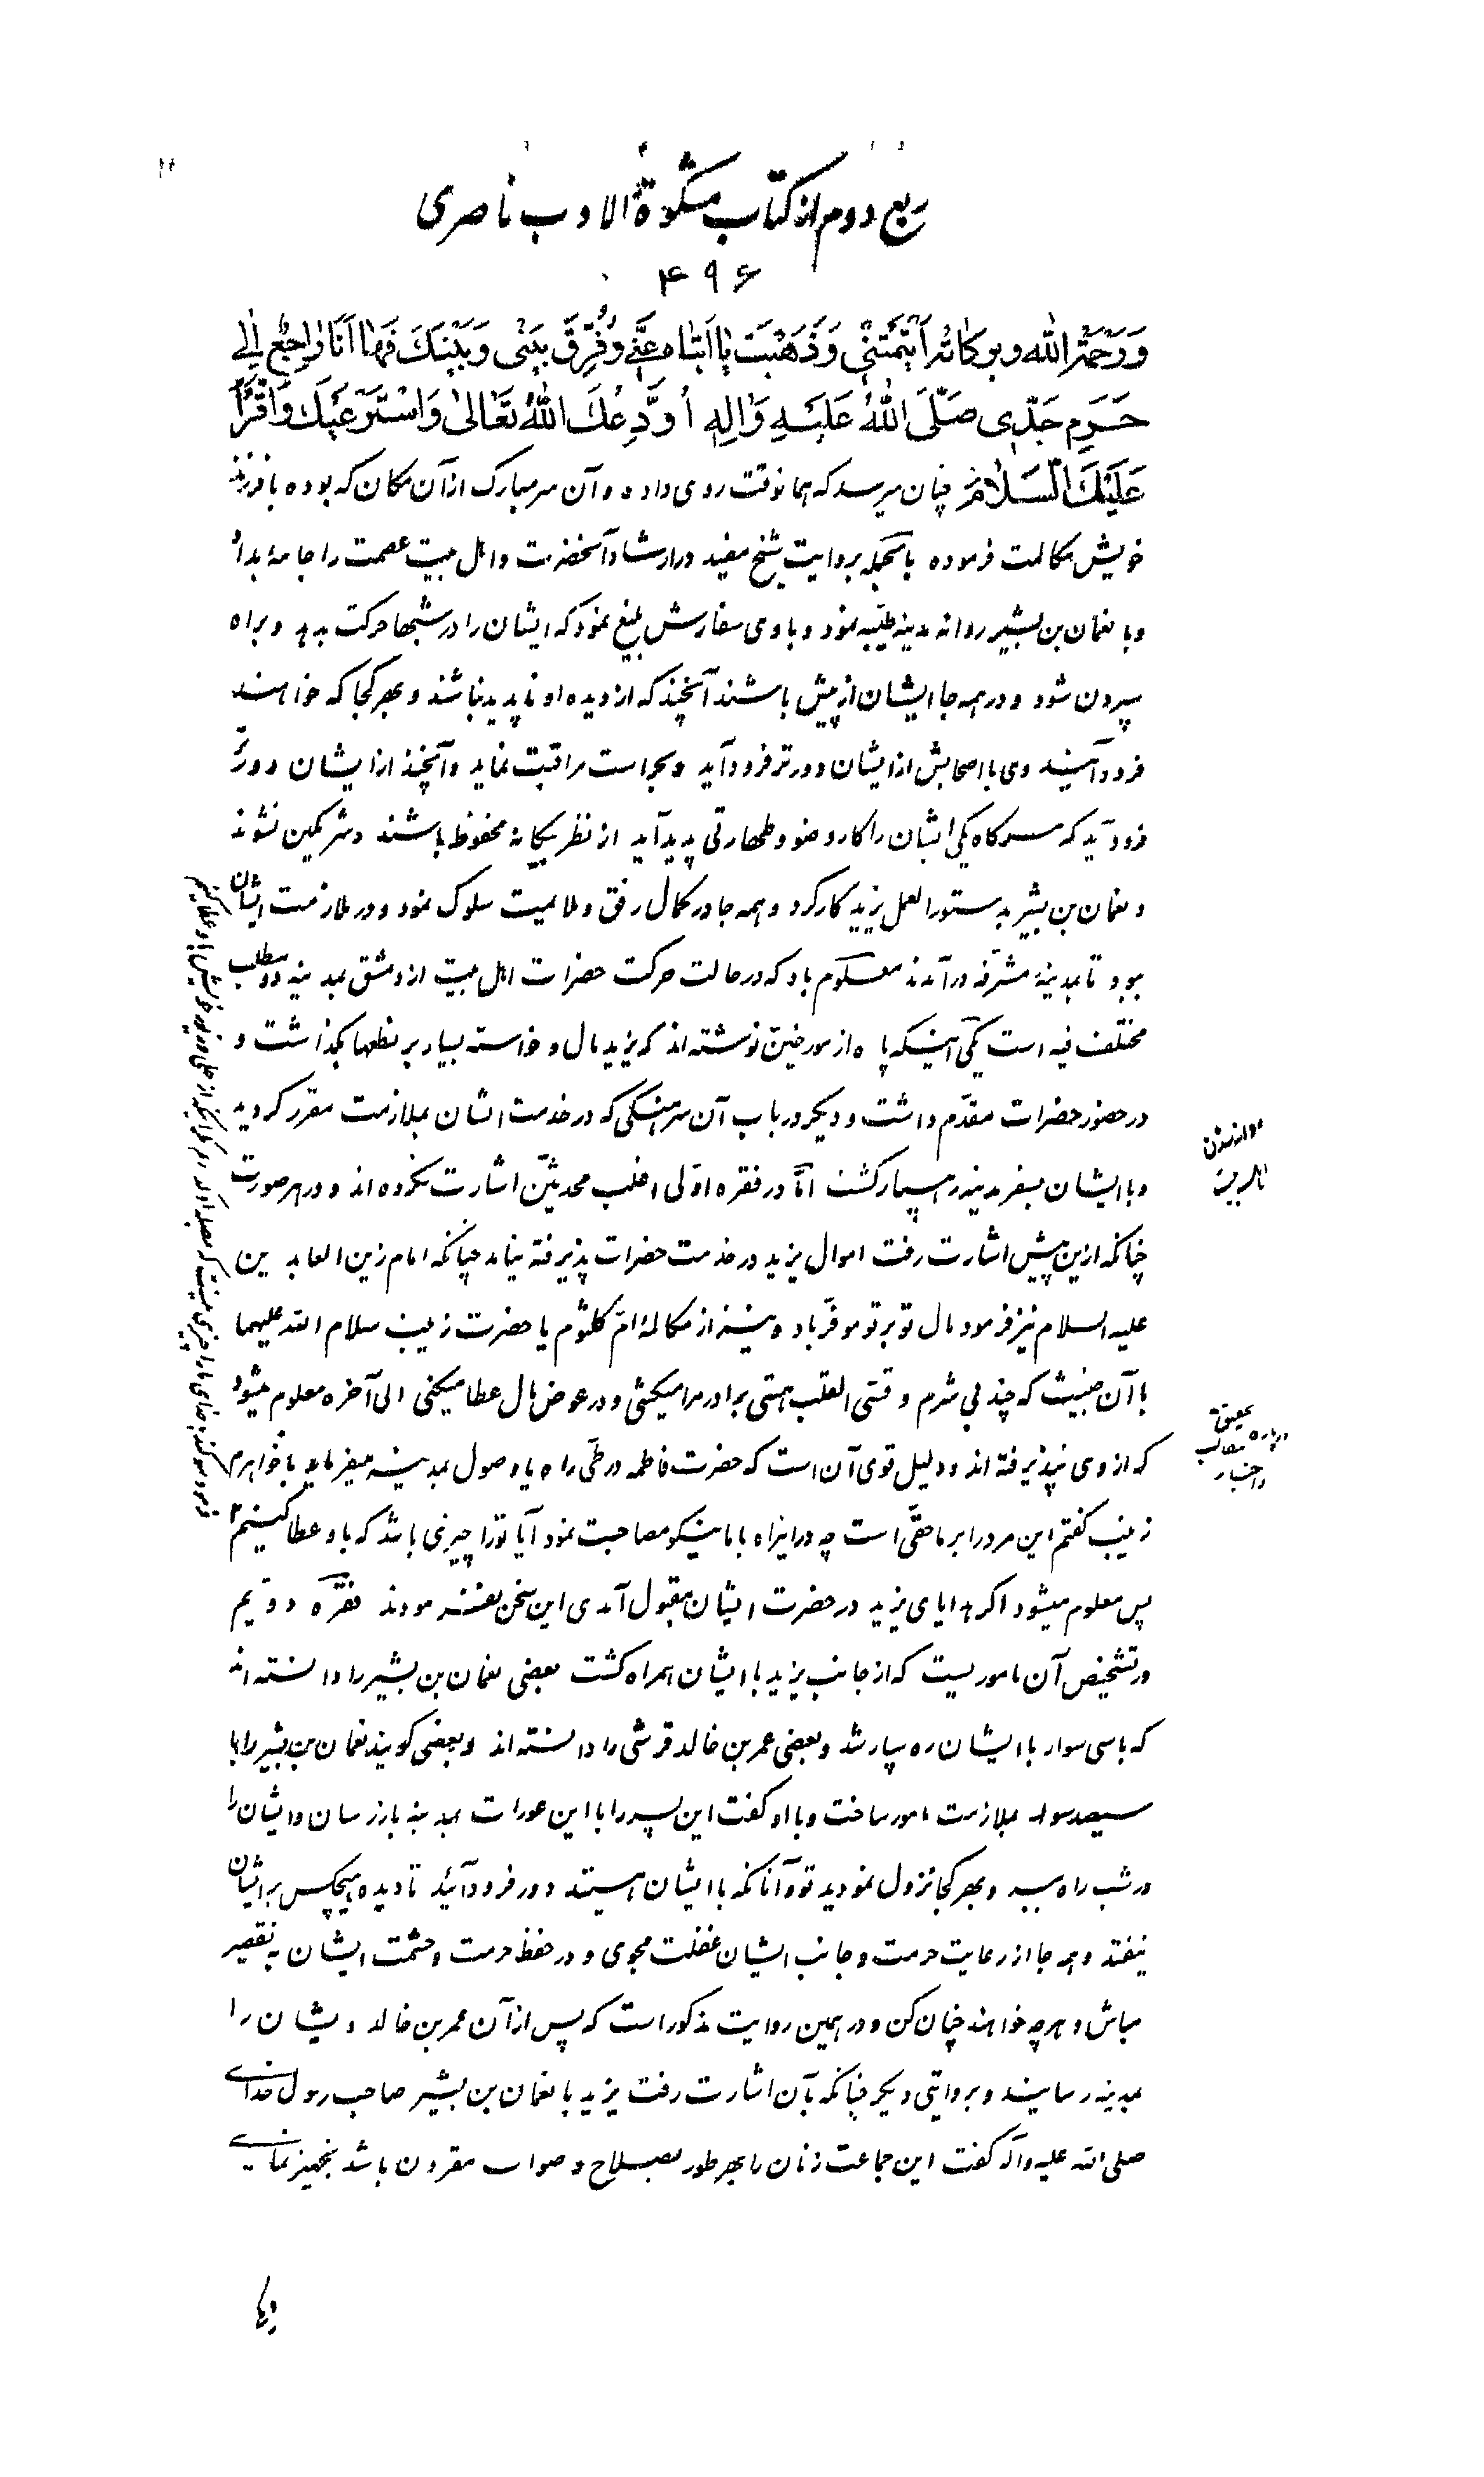 ربع دوم از کتاب مشکوة الادب ناصری
۴۹۶
وَرَحْمَةُ اللهِ وبرکاتُه اَیْتَمْتَنِی وَذَهَبْتَ یا اَبَتاه عَنّی وَفُرِّقَ بَیْنی وَبَیْنَکَ فَها اَنَا راجِعٌ اِلی
حَرَمِ جَدّی صَلَّی اللهُ عَلَیْهِ وَالِهِ أوَدِّعُکَ اللهُ تَعالی وَاَسْتَرعیکَ وَاَقْرَأُ
عَلَیْکَ السَّلامَ چنان میرسد که همانوقت روی داده و آن سر مبارک از آن مکان که بوده با فرزند
خویش مکالمت فرموده بالجمله بروایت شیخ مفید در ارشاد آنحضرت و اهل بیت عصمت را جامه بداد
و با نعمان بن بشیر روانه مدینه طیبه نمود و با وی سفارش بلیغ نمود که ایشان را در شبها حرکت بدهد و براه
بیرون شود و در همه جا ایشان از پیش باشند آنچند که از دیده او ناپدید نباشند و بهر کجا که خواهند
فرود آیند وی با اصحابش از ایشان دورتر فرود آید و بحراست مراقبت نماید و آنچند از ایشان دور
فرود آید که هرگاه یکی ایشان را کار وضو و طهارتی پدید آید از نظر بیگانه محفوظ باشند و شرمگین نشوند
و نعمان بن بشیر بدستور العمل یزید کار کرد و همه جا در کمال رفق و ملامیت سلوک نمود و در ملازمت ایشان
ببود تا بمدینهٔ مشرفه درآمدند معلوم باد که در حالت حرکت حضرات اهل بیت از دمشق بمدینه دو مطلب
مختلف فیه است یکی اینکه پاره از مورخین نوشته‌اند که یزید مال و خواسته بسیار بر نطعها بگذاشت و
در حضور حضرات مقدم داشت و دیگر در باب آن سرهنگی که در خدمت ایشان بملازمت مقرر گردید
و با ایشان بسفر مدینه رهسپار گشت اما در فقره اولی اغلب محدثین اشارت نکرده‌اند و در هر صورت
چنانکه ازین پیش اشارت رفت اموال یزید در خدمت حضرات پذیرفته نیامد چنانکه امام زین العابدین
علیه السلام نیز فرمود مال تو بر تو موفر باد و نیز از مکالمهٔ ام کلثوم یا حضرت زینب سلام الله علیهما
با آن خبیث که چند بی شرم و قسی القلب هستی برادر مرا میکشی و در عوض مال عطا میکنی الی آخره معلوم میشود
که از وی نپذیرفته‌اند و دلیل قوی آن است که حضرت فاطمه در طی راه یا وصول بمدینه میفرماید با خواهرم
زینب گفتم این مرد را بر ما حقی است چه در این راه با ما نیکو مصاحبت نمود آیا تو را چیزی باشد که باو عطا کنیم
پس معلوم میشود اگر هدایای یزید در حضرت ایشان مقبول آمدی این سخن نفرمودند فقره دویم
در تشخیص آن ماموریست که از جانب یزید با ایشان همراه گشت بعضی نعمان بن بشیر را دانسته‌اند
که با سی سوار با ایشان ره سپار شد و بعضی عمر بن خالد قرشی را دانسته‌اند و بعضی گویند نعمان بن بشیر را با
سیصد سوار بملازمت مامور ساخت و با او گفت این پسر را با این عورات بمدینه باز رسان و ایشان را
در شب راه سپر و بهر کجا نزول نمودید تو و آنانکه با ایشان هستند دور فرود آئید تا دیده هیچکس بر ایشان
نیفتد و همه جا از رعایت حرمت و جانب ایشان غفلت مجوی و در حفظ حرمت و حشمت ایشان به تقصیر
مباش و هر چه خواهند چنان کن و در همین روایت مذکور است که پس از آن عمر بن خالد ایشان را
بمدینه رسانید و بروایتی دیگر چنانکه بآن اشارت رفت یزید با نعمان بن بشیر صاحب رسول خدای
صلی الله علیه وآله گفت این جماعت زنان را بهر طور بصلاح و صواب مقرون باشد بتجهیز نمای
تحقیق
درباره مطالب
و اخبار